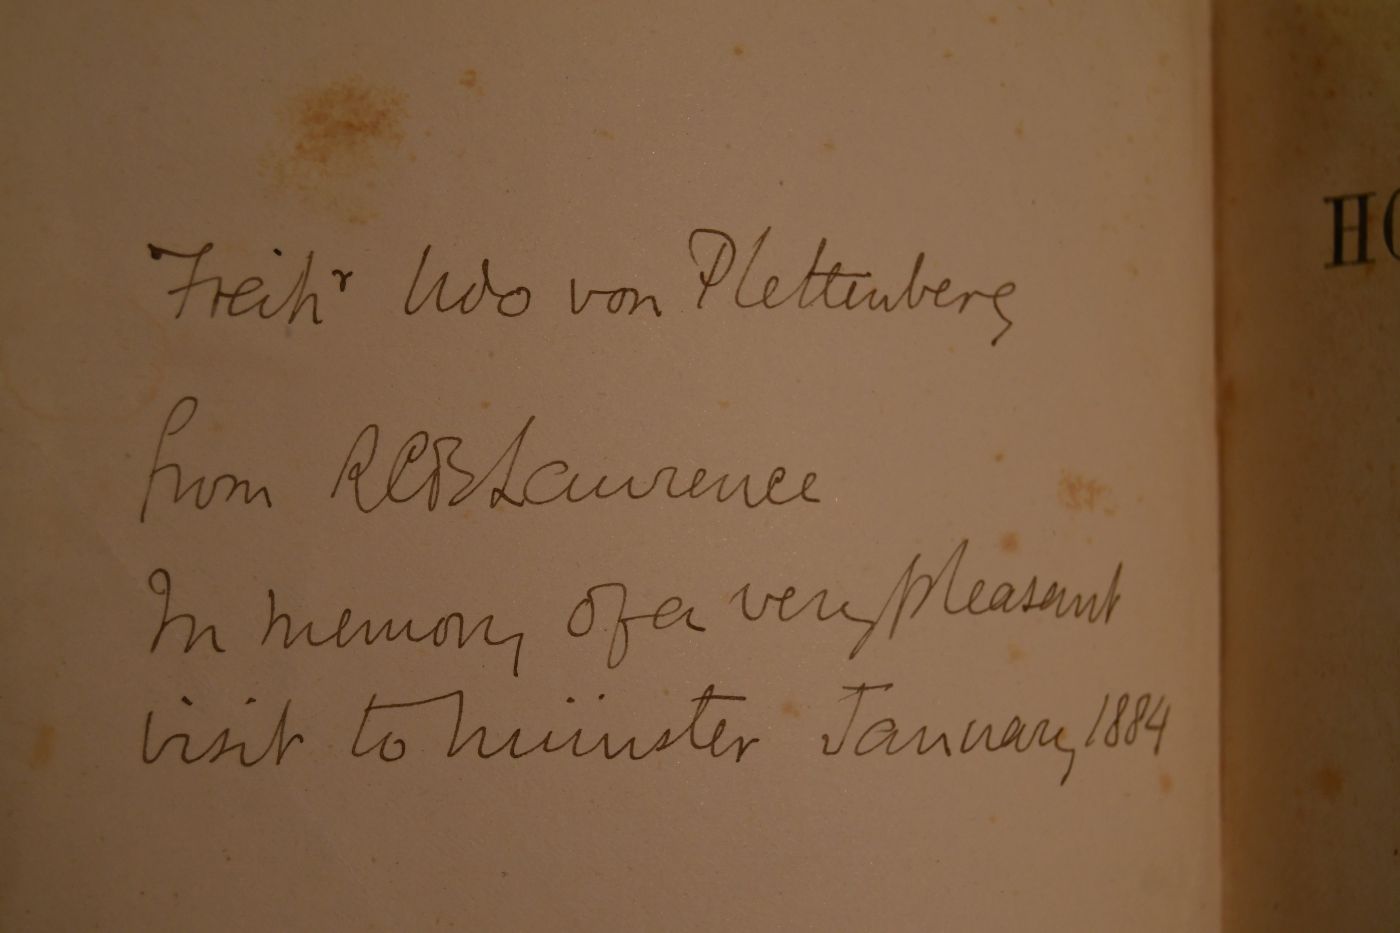 Freihr Udo von Plettenberg
HO
from RCB Lawrence
In memory of a very pleasant
visit to Münster January 1884